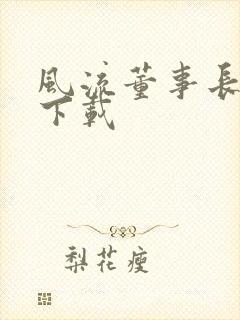 風流董事長
下載
梨花瘦